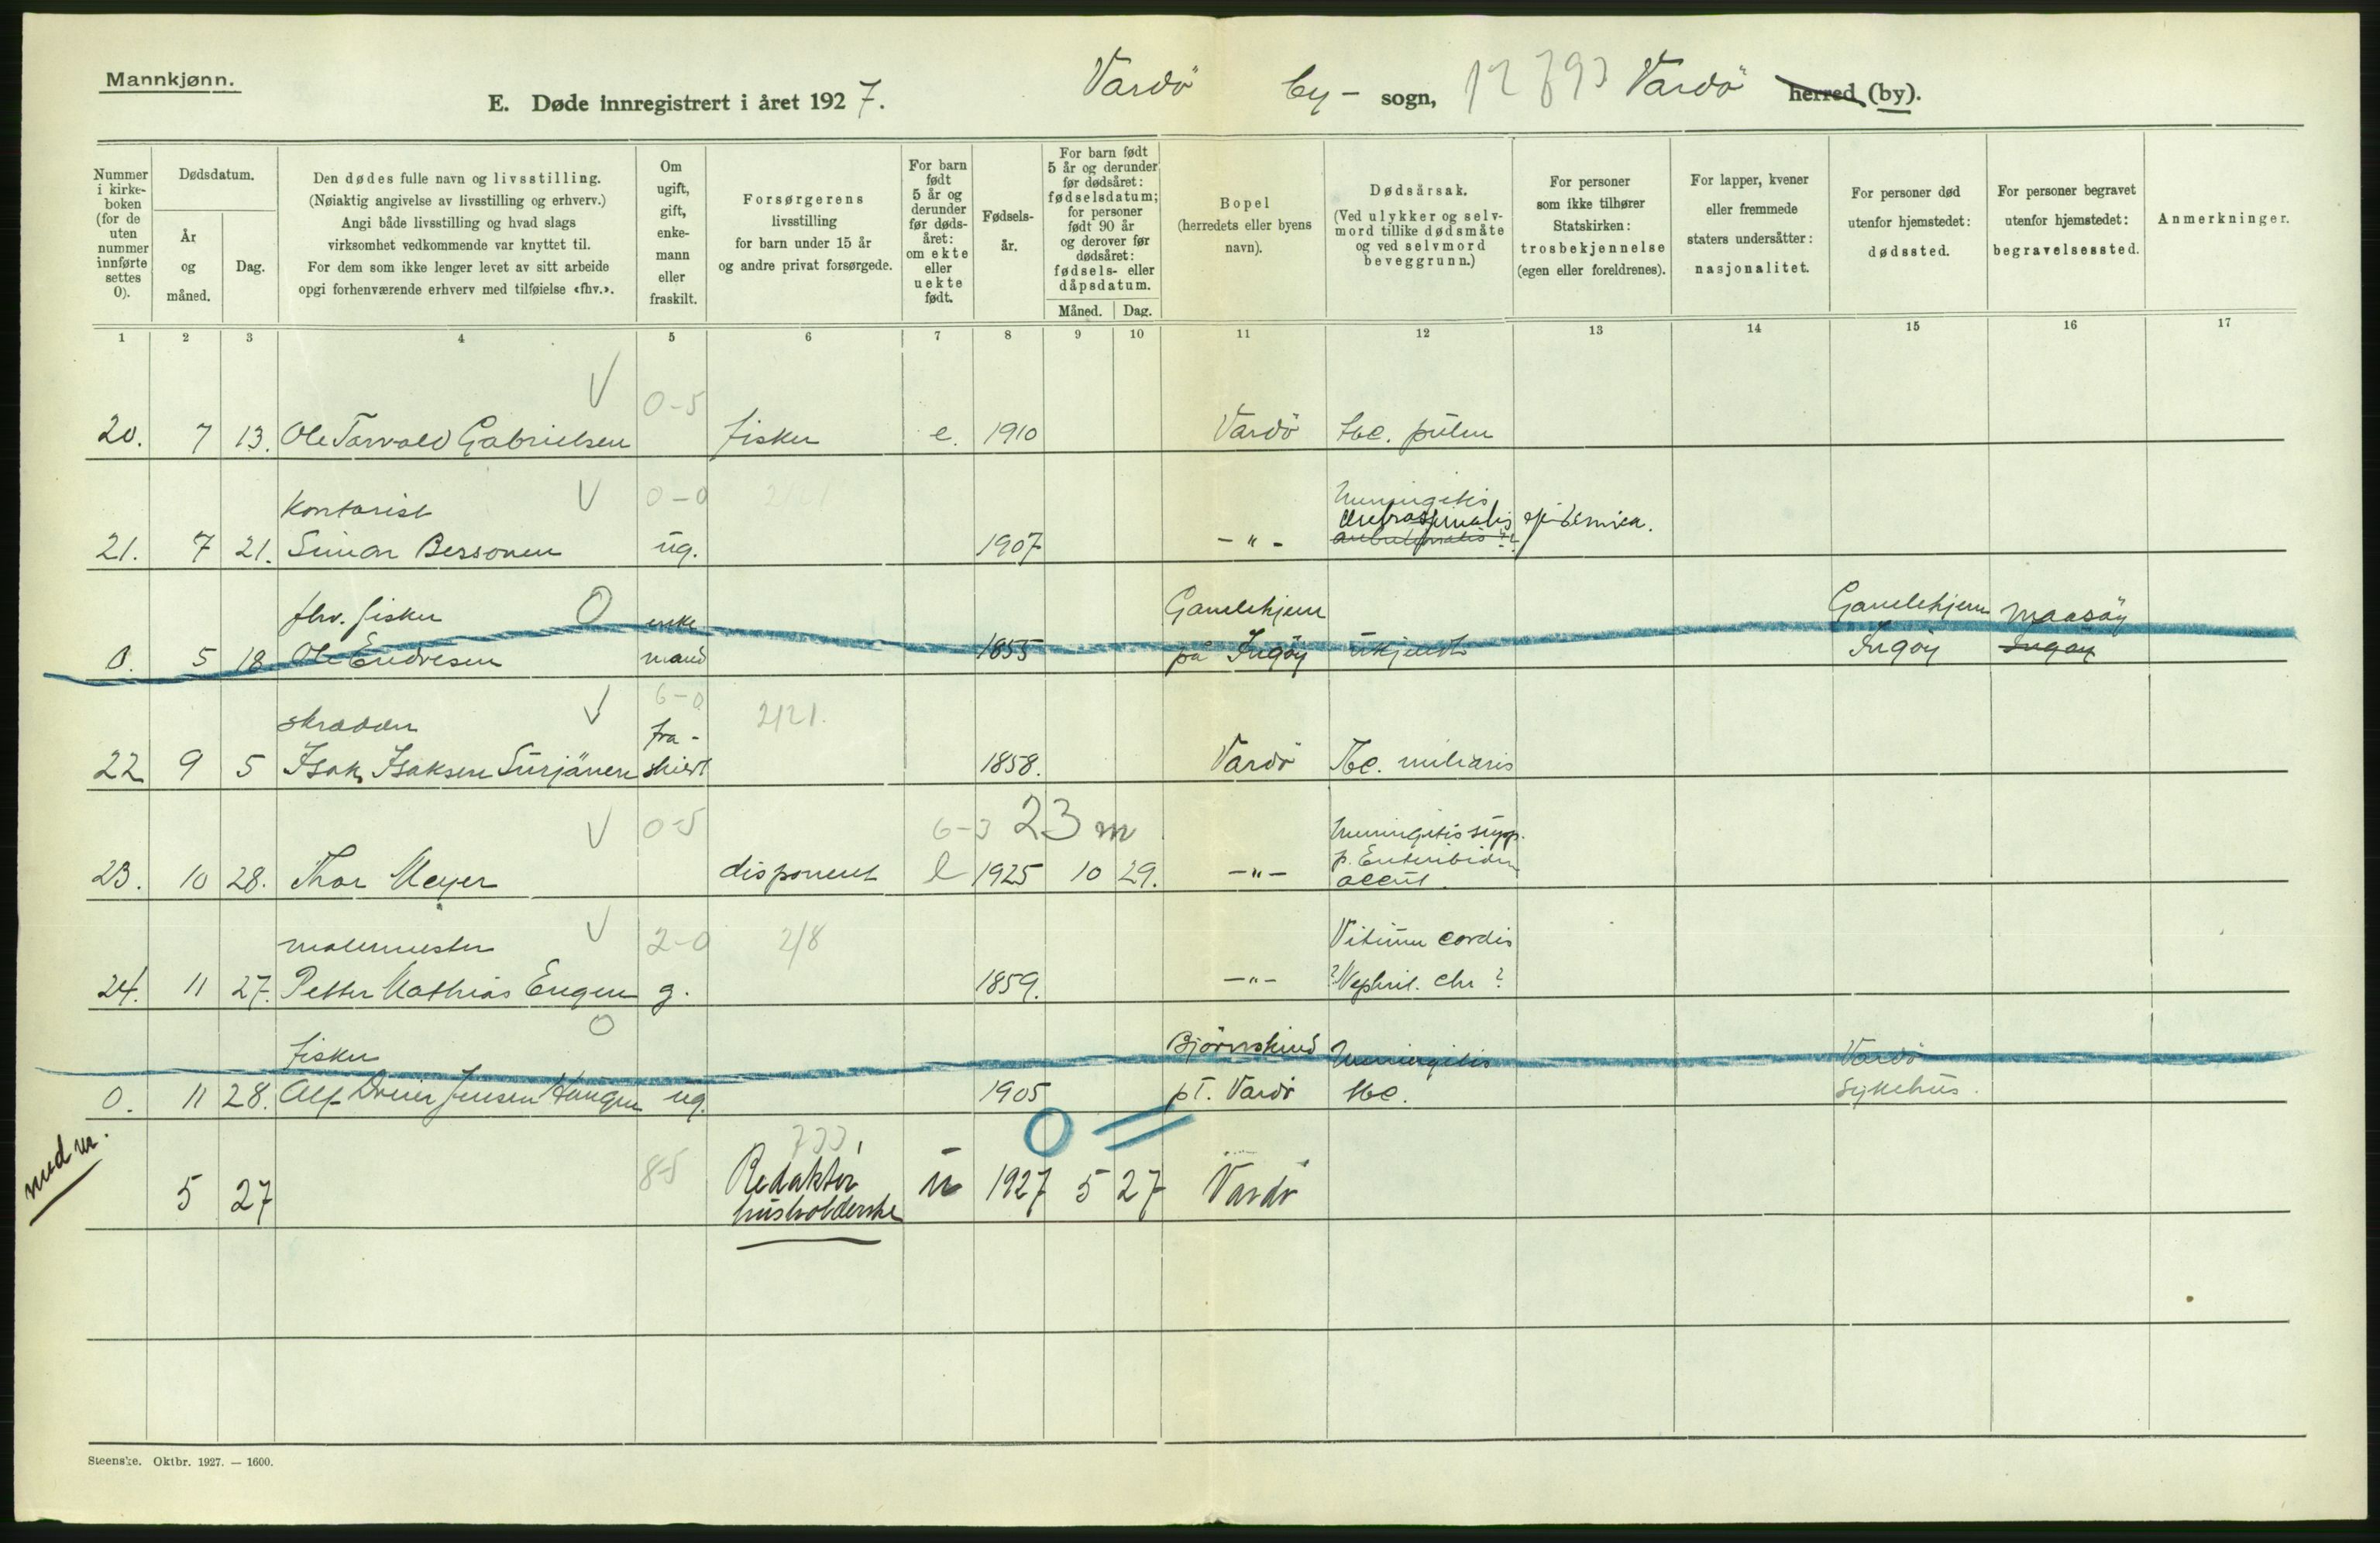 Mannkjønn.
E. Døde innregistrert i året 1927.
Vardö by - sogn, Vardö herred (by).
Nummer i kirke-boken (for de uten nummer innførte settes 0).
Dødsdatum.
År og måned.
Dag.
Den dødes fulle navn og livsstilling.
(Nøiaktig angivelse av livsstilling og erhverv.)
Angi både livsstilling og hvad slags
virksomhet vedkommende var knyttet til.
For dem som ikke lenger levet av sitt arbeide
opgi forhenværende erhverv med tilføielse «fhv.».
Om ugift, gift, enke-mann eller fraskilt.
Forsørgerens
livsstilling
for barn under 15 år
og andre privat forsørgede.
For barn født 5 år og derunder før døds-året: om ekte eller uekte født.
Fødsels-år.
For barn født 5 år og derunder før dødsåret: fødselsdatum; for personer født 90 år og derover før dødsåret: fødsels- eller dåpsdatum.
Måned. Dag.
Bopel
(herredets eller byens
navn).
Dødsårsak.
(Ved ulykker og selv-
mord tillike dødsmåte
og ved selvmord
beveggrunn.)
For personer
som ikke tilhører
Statskirken:
trosbekjennelse
(egen eller foreldrenes).
For lapper, kvener
eller fremmede
staters undersåtter:
nasjonalitet.
For personer død
utenfor hjemstedet:
dødssted.
For personer begravet
utenfor hjemstedet:
begravelsessted.
Anmerkninger.
1 2 3 4 5 6 7 8 9 10 11 12 13 14 15 16 17
0-5
20. 7 13. Ole Torvald Gabrielsen fisker e. 1910 Vardö tbc. pulm
kontorist 0-0 Meningitis
cerebrospinalis epidemica.
21. 7 21. Simon Bersonen ug. 1907 -"-
fhv. fisker O enke Gamlehjem Gamlehjem Maasöy
0. 5 18 Ole Endresen mand 1855 på Ingöy ukjendt Ingöy Ingöy
6-0
skrædder fra- 2121.
22 9 5 Isak Isaksen Surjänen skildt 1858. Vardö Tbc. miliaris
0-5 6-3 23 m Meningitis supp.
23. 10 28. Thor Meyer disponent e 1925 10 29. -"-
malermester 2-0 2/8 Vitium cordis
24. 11 27. Petter Mathias Engen g. 1859. -"- ? Nephrit. chr ?
O
fisker Björnskind Meningitis Vardö
0. 11 28. Alf Jensen Haugen ug. 1905 pt. Vardö tbc. Sykehus.
med m.
85 Redaktör
5 27 husholderske u 1927 5 27 Vardö
Steenske. Oktbr. 1927. — 1600.